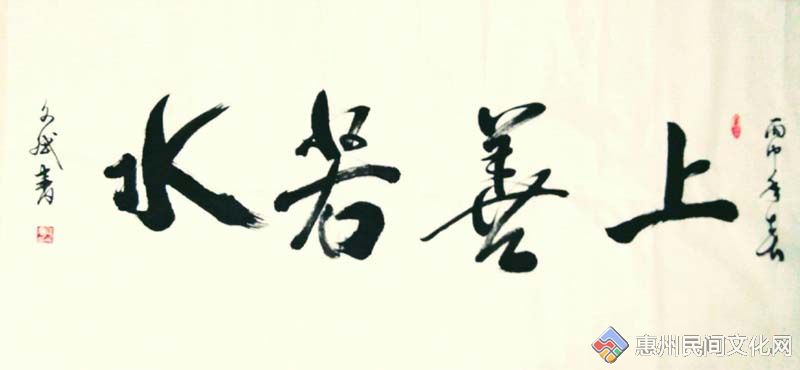 丙申年春
上善若水
文斌书
惠州民间文化网